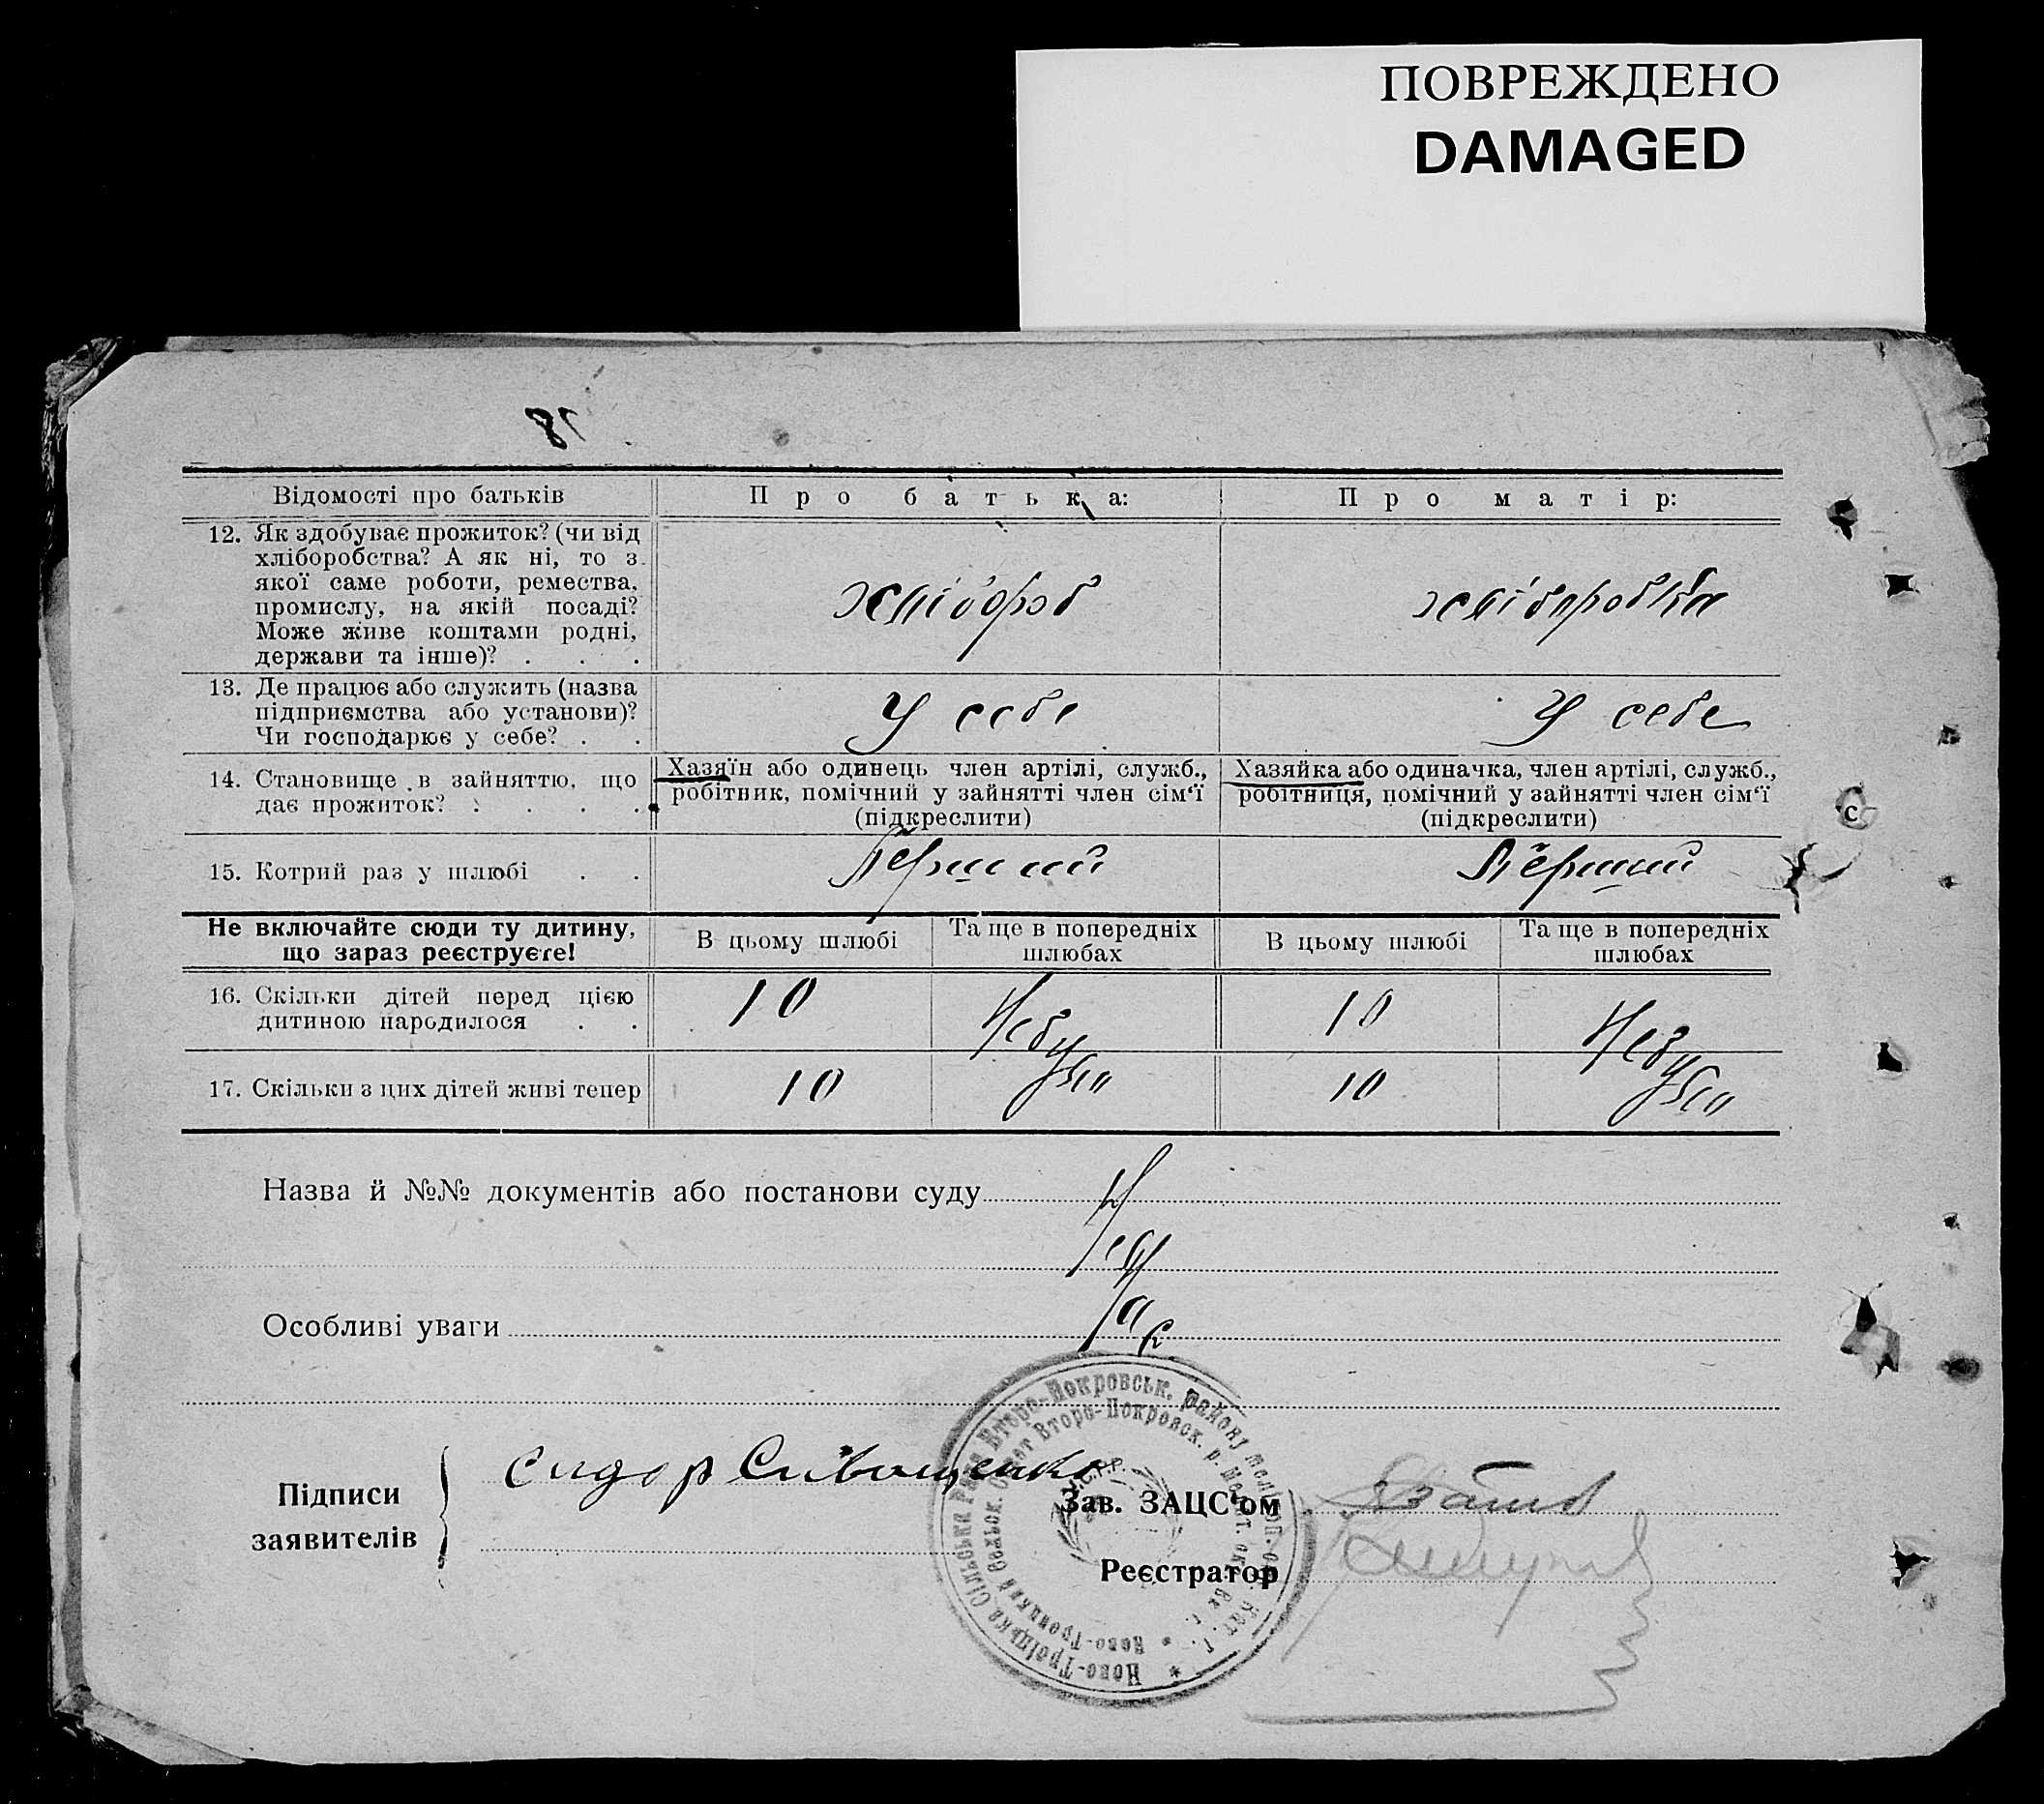 ПОВРЕЖДЕНО
DAMAGED
Відомості про батьків
Про батька:
Про матір:
12. Як здобуває прожиток? (чи від
хліборобства? А як ні, то з
якої саме роботи, ремества,
промислу, на якій посаді?
Може живе коштами родні,
держави та інше)? . . .
хлібороб
хліборобка
13. Де працює або служить (назва
підприємства або установи)?
Чи господарює у себе? . .
У себе
У себе
14. Становище в зайняттю, що
дає прожиток? . . . .
Хазяїн або одинець член артілі, служб.,
робітник, помічний у зайнятті член сім‘ї
(підкреслити)
Хазяйка або одиначка, член артілі, служб.,
робітниця, помічний у зайнятті член сім‘ї
(підкреслити)
15. Котрий раз у шлюбі . .
Перший
Перший
Не включайте сюди ту дитину,
що зараз реєструєте!
В цьому шлюбі
Та ще в попередніх
шлюбах
В цьому шлюбі
Та ще в попередніх
шлюбах
16. Скільки дітей перед цією
дитиною народилося . .
10
Небуло
10
Небуло
17. Скільки з цих дітей живі тепер
10
10
Назва й №№ документів або постанови суду
Особливі уваги
Підписи
заявителів
Сидор
Зав. ЗАЦС‘ом
Реєстратор
Ново-Троїцька Сільська Рада Второ-Покровськ. району Меліт
Ново-Троицкий Сельск. Совет Второ-Покровск. р. Мелит. ок
У.С.Р.Р.